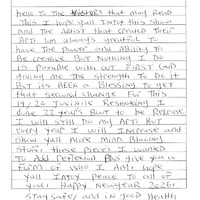 hello To The Visitors that may Read
This I hope yall Enjoy this show
and The Artist that created their
Art. Im always greatful To
have The Power and Ability To
Be creative But Nothing I do
is possible with out First God
giving me The Strength To Do it
But its Been a Blessing To get
that Sexual Change For This
I will still Do my Art But
Every year I will Increase and
Show yall more Mind Blowing
Stuff. These Pieces I wanted
To Add Perfection Plus give you a
Form of who I Am. I hope
yall Enjoy Peace To all of
you! Happy Newyear 2026!
Stay safe, and in good Health